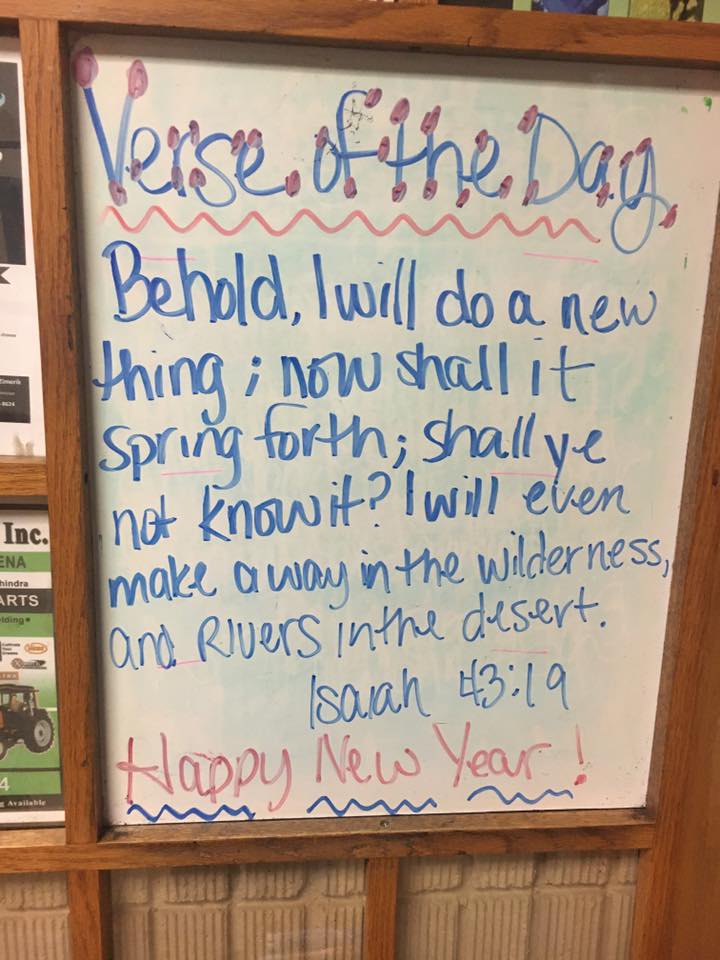 Verse of the Day
Behold, I will do a new
thing; now shall it
spring forth; shall ye
not know it? I will even
make a way in the wilderness,
and Rivers in the desert.
Isaiah 43:19
Happy New Year!
Inc.
ENA
ahindra
ARTS
lding*
4
g Available